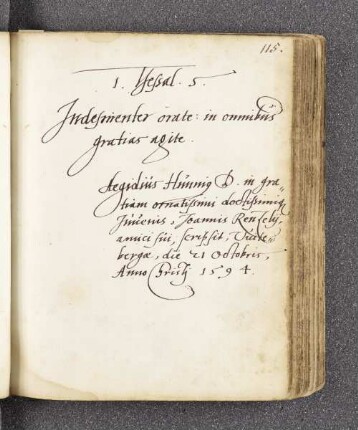 115.
1. Thessal. 5.
Indesinenter orate: in omnibus
gratias agite.
Aegidius Hunnig D. in gra-
tiam ornatissimi doctissimiq
Juvenis, Joannis
amici sui, scripsit, Vite-
bergae, die 21 Octobris,
Anno Christi 1594.